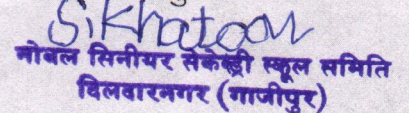 S. Khatoon
नोबल सिनीयर सेकेण्ड्री स्कूल समिति
दिलदारनगर (गाजीपुर)